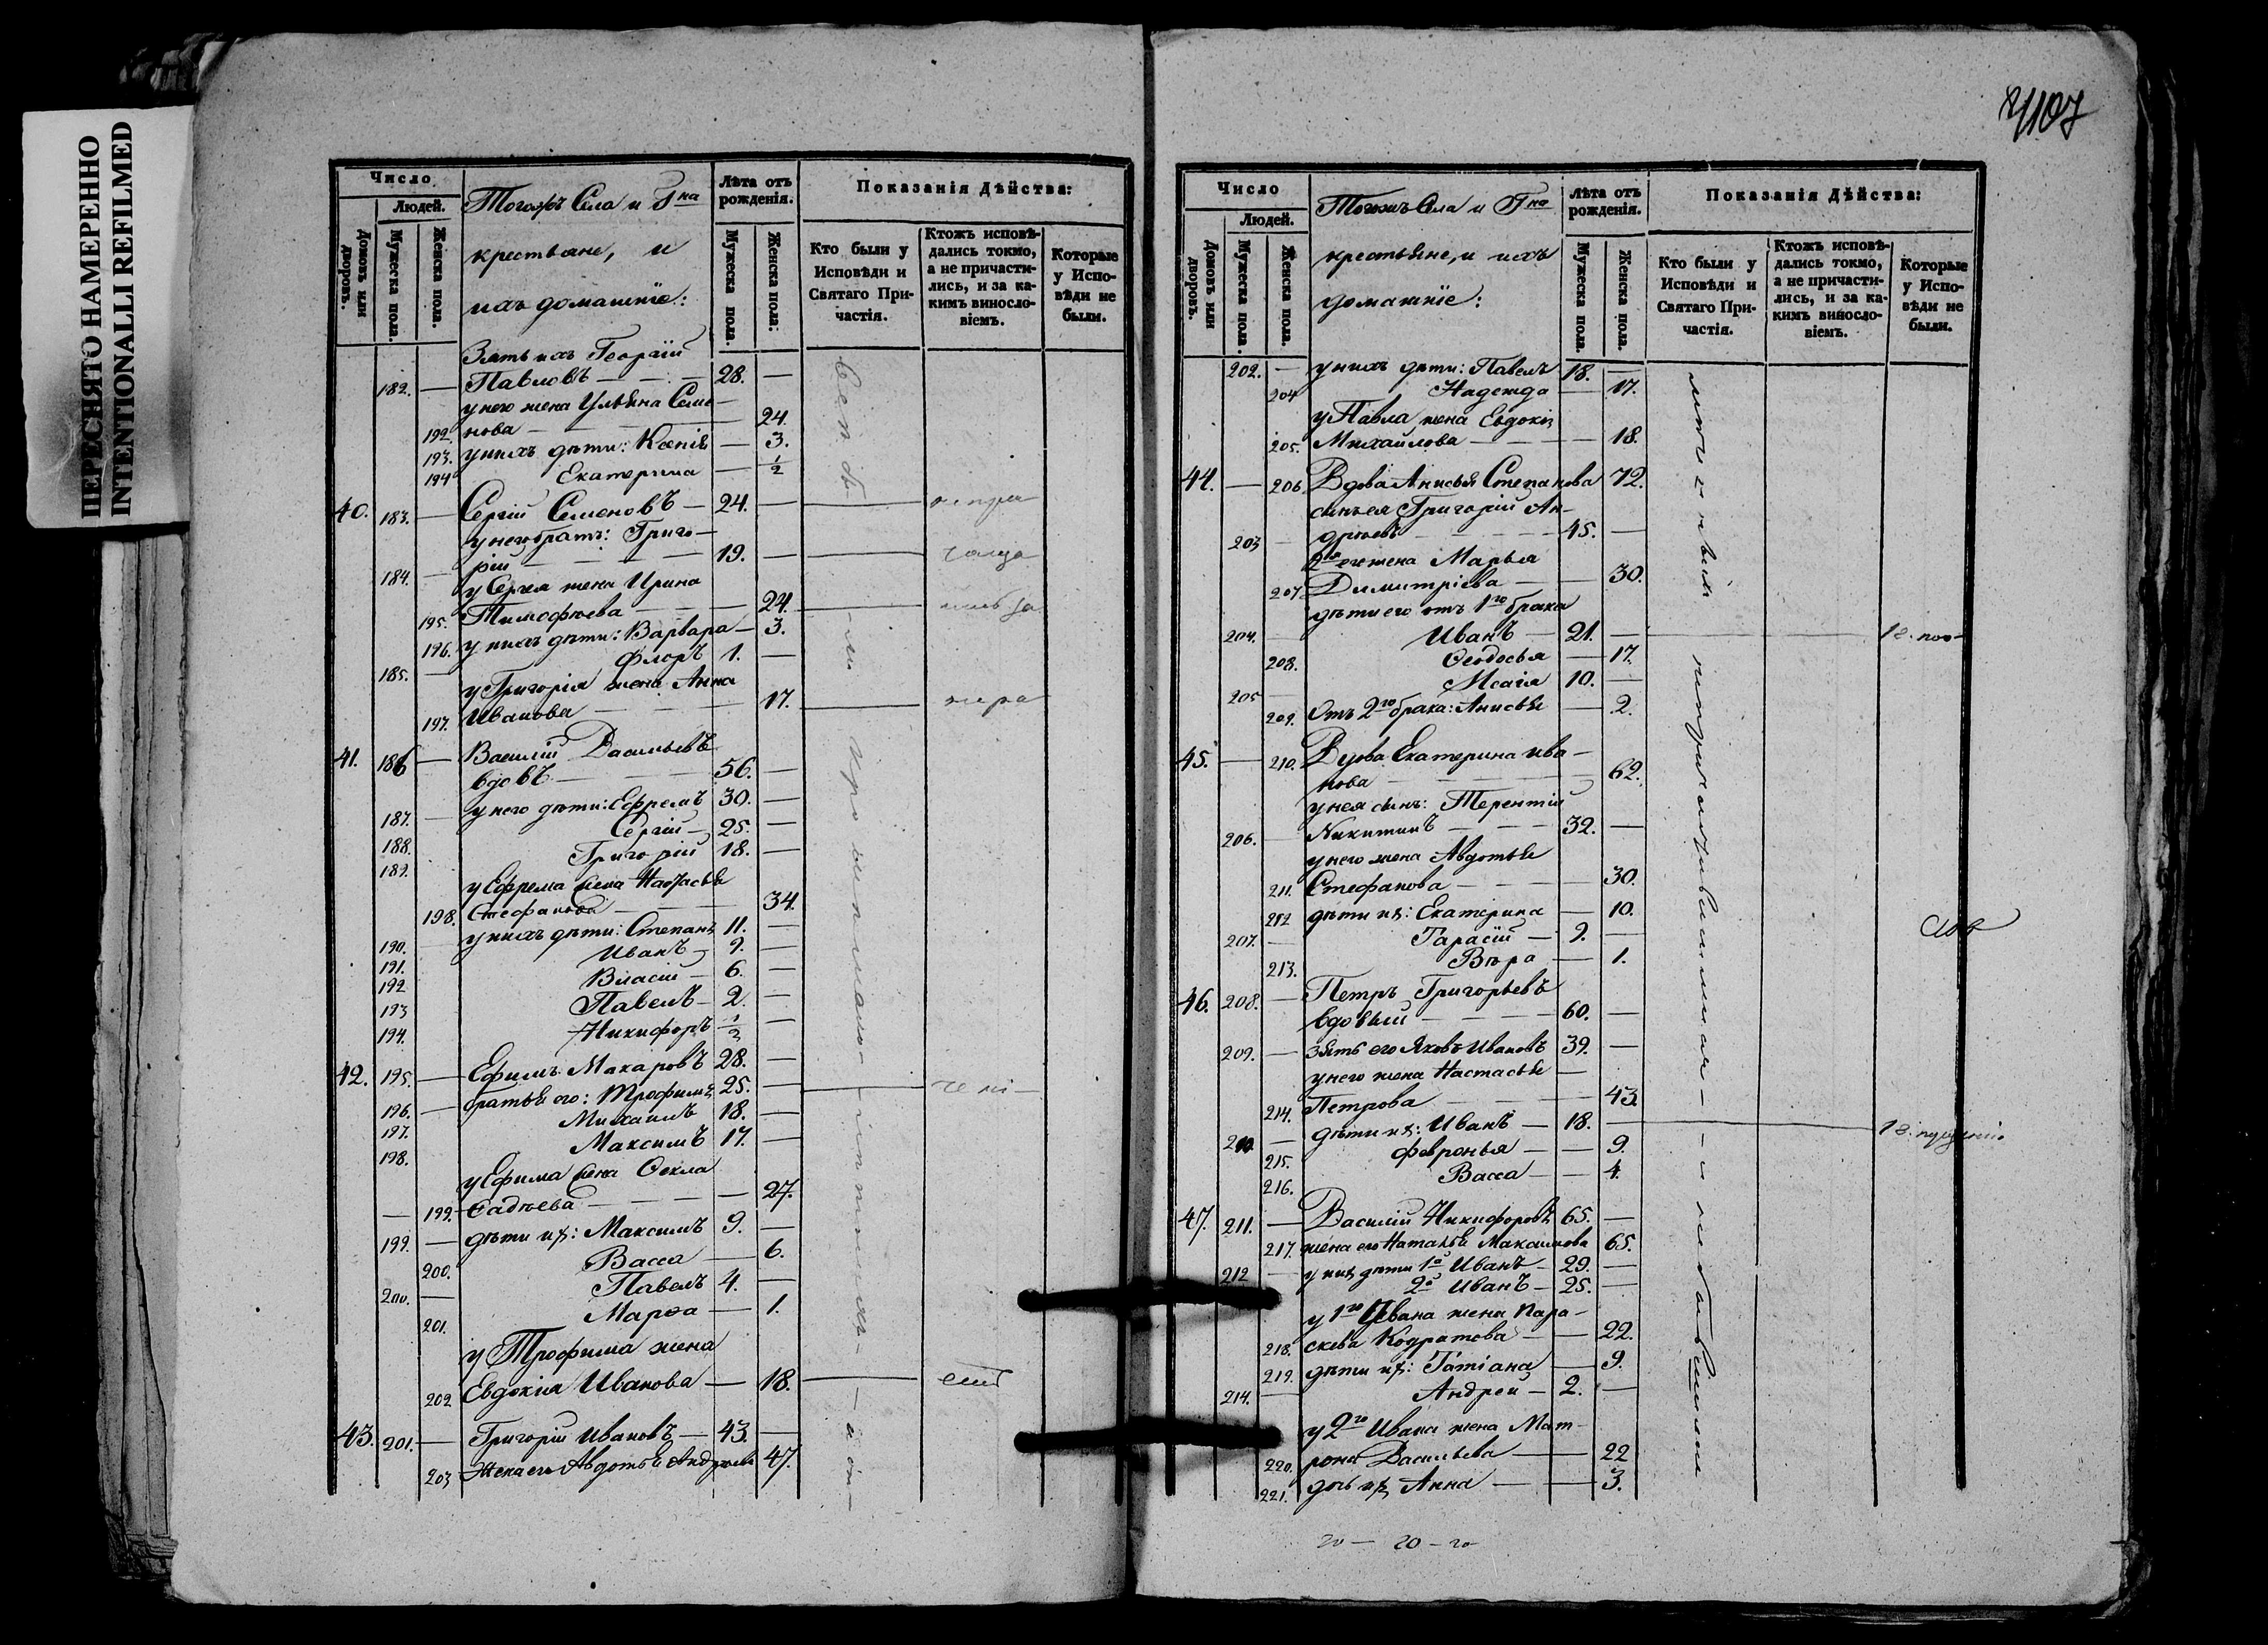 ПЕРЕСНЯТО НАМЕРЕННО
INTENTIONALLI REFILMED
Число
Людей.
Домовъ или дворовъ.
Мужеска пола.
Женска пола.
Тогожъ Села и Гна
крестьяне, и
ихъ домашніе:
Лѣта отъ рожденія.
Мужеска пола.
Женска пола:
Показанія Дѣйства:
Кто были у Исповѣди и Святаго Причастія.
Ктожъ исповѣдались токмо, а не причастились, и за какимъ винословіемъ.
Которые у Исповѣди не были.
Зять ихъ Георгій
182. — Павловъ — 28. —
у него жена Ульяна Семе-
192. нова — 24.
193. у нихъ дѣти: Ксенія — 3.
194 Екатерина — 1/2
40. 183. — Сергій Семеновъ — 24. —
у него братъ: Григо-
184. — рій — 19. —
у Сергея жена Ирина
195. Тимофеева — 24.
196. у нихъ дѣти: Варвара — 3.
185. — Флоръ 1. —
у Григорія жена Анна
197. Иванова — 17.
41. 186 — Василій Васильевъ
вдовъ — 56. —
187. — у него дѣти: Ефремъ 30. —
188. Сергій — 25. —
189. Григорій 18. —
у Ефрема жена Настасья
198. Стефанова — 34.
190. у нихъ дѣти: Степанъ 11. —
191. Иванъ — 9. —
192 Власій — 6. —
193 Павелъ — 2. —
194. Никифоръ 1/2 —
42. 195. — Ефимъ Макаровъ 28. —
196. — братья его: Трофимъ 25. —
197. Михаилъ 18. —
198. Максимъ 17. —
у Ефима жена Ѳекла
— 199. Фадѣева — 27.
199. — дѣти ихъ: Максимъ 9. —
200. Васса — 6.
200. — Павелъ 4. —
201. Марѳа — 1.
у Трофима жена
202 Евдокія Иванова — 18.
43. 201. — Григорій Ивановъ — 43. —
203 Жена его Авдотья Андреева 47.
107
Число
Людей.
Домовъ или дворовъ.
Мужеска пола.
Женска пола.
Тогожъ Села и Гна
крестьяне, и ихъ
домашніе:
Лѣта отъ рожденія.
Мужеска пола.
Женска пола.
Показанія Дѣйства:
Кто были у Исповѣди и Святаго Причастія.
Ктожъ исповѣдались токмо, а не причастились, и за какимъ винословіемъ.
Которые у Исповѣди не были.
202. — у нихъ дѣти: Павелъ 18. —
204 Надежда — 17.
у Павла жена Евдокія
205. Михайлова — 18.
44. — 206. Вдова Анисья Степанова 72.
сынъ ея Григорій Ан-
203 — дреевъ — 45. —
2я его жена Марья
207. Димитріева — 30.
дѣти его отъ 1го брака
204. — Иванъ — 21. —
208. Ѳеодосья — 17.
205 — Исаія 10. —
209. Отъ 2го брака: Анисья — 2.
45. — 210. Вдова Екатерина Ива-
нова — 62.
у нея сынъ: Терентій
206. — Никитинъ — 32. —
у него жена Авдотья
211. Стефанова — 30.
212 дѣти ихъ: Екатерина — 10.
207. — Тарасій — 9. —
213. Вѣра — 1.
46. 208. — Петръ Григорьевъ
вдовый — 60. —
209. — зять его Яковъ Ивановъ 39. —
у него жена Настасья —
214. Петрова — 43
210. — дѣти ихъ: Иванъ — 18. —
215. Февронья — 9.
216. Васса — 4.
47. 211. — Василій Никифоровъ 65. —
217. жена его Наталья Максимова 65.
212 — у нихъ дѣти 1й Иванъ — 29. —
2й Иванъ — 25. —
у 1го Ивана жена Пара-
218. скева Кодратова — 22.
219. дѣти ихъ: Татіана — 9.
214. — Андрей — 2. —
у 2го Ивана жена Мат-
220. рона Васильева — 22
221. дочь ихъ Анна — 3.
20 — 20 — 20